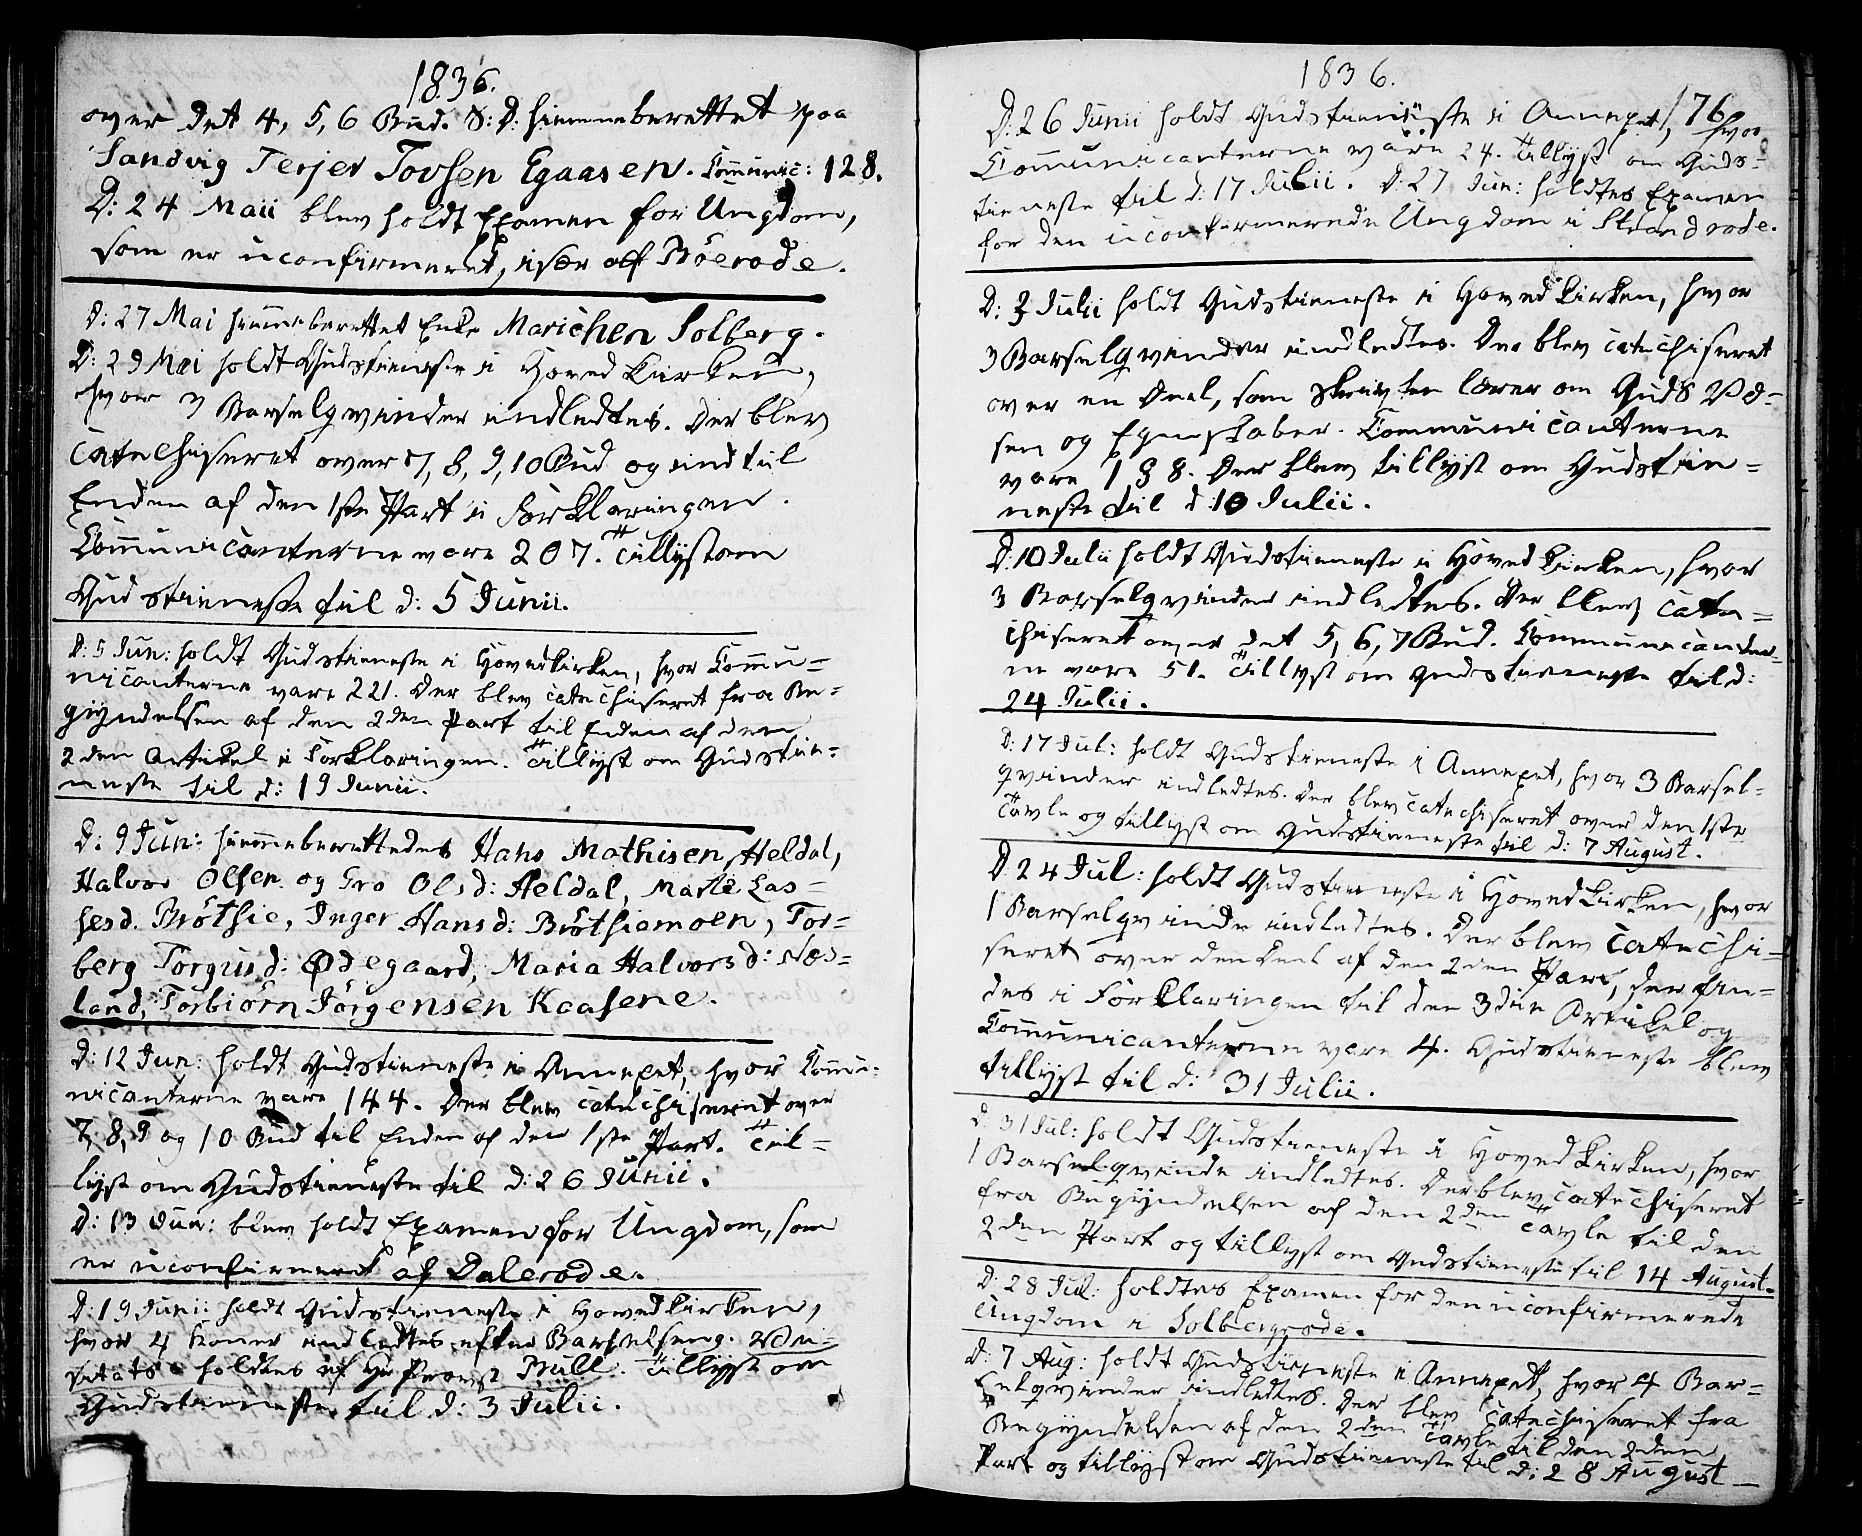 1836.
over det 4, 5, 6 Bud. S: D: hiemmeberettet paa
Sandvig Terjer Tovsen Egaasen. Comunic: 128.
D: 24 Maii blev holdt Examen for Ungdom,
som er uconfirmeret, især af Böerode.
D: 27 Mai hiemmeberettet Enke Marichen Solberg.
D: 29 Mai holdt Gudstieneste i Hovedkirken,
hvor 3 Barselqvinder indledtes. Der blev
catechiseret over 7, 8, 9, 10 Bud og indtil
Enden af den 1ste Part i Forklaringen.
Comunicanterne vare 207. Tillyst om
Gudstieneste til d: 5 Junii.
D: 5 Jun: holdt Gudstieneste i Hovedkirken, hvor Commu=
nicanterne vare 221. Der blev catechiseret fra Be=
gyndelsen af den 2den Part til Enden af den
2den Artikel i Forklaringen. Tillyst om Gudstie=
neste til d: 19 Junii.
D: 9 Jun: hiemmeberettedes Hans Mathisen Heldal,
Halvor Olsen og Gro Olsd: Heldal, Marte Las=
sesd. Bröthie, Inger Hansd: Bröthiemoen, Tor=
berg Torgusd: Ødegaard, Maria Halvorsd: Næs=
land, Torbiörn Jörgensen Kaasene.
D: 12 Jun: holdt Gudstieneste i Annexet, hvor Comu=
nicanterne vare 144. Der blev catechiseret over
7, 8, 9 og 10 Bud til Enden af den 1ste Part. Til=
lyst om Gudstieneste til d: 26 Junii.
D: 13 Jun: blev holdt Examen for Ungdom, som
er uconfirmeret af Dalerode.
D: 19 Junii holdt Gudstieneste i Hovedkirken,
hvor 4 Koner indledtes efter Barselseng. Vi=
sitats holdtes af Hr Provst Bull. Tillyst om
Gudstieneste til d: 3 Julii.
1836.
176
D: 26 Junii holdt Gudstieneste i Annexet, hvor
Comunicanterne vare 24. Tillyst om Guds=
tieneste til d: 17 Julii. D: 27 Jun: holdtes Examen
for den uconfirmerede Ungdom i Strandrode.
D: 3 Julii holdt Gudstieneste i Hovedkirken, hvor
3 Barselqvinder indledtes. Der blev catechiseret
over en Deel, som Skriften lærer om Guds Væ=
sen og Egenskaber. Communicanterne
vare 198. Der blev tillyst om Gudstie=
neste til d: 10 Julii.
D: 10 Julii holdt Gudstieneste i Hovedkirken, hvor
3 Barselqvinder indledtes. Der blev cate=
chiseret over det 5, 6, 7 Bud. Communicanter=
ne vare 51. Tillyst om Gudstieneste til d:
24 Julii.
D: 17 Jul: holdt Gudstieneste i Annexet, hvor 3 Barsel=
qvinder indledtes. Der blev catechiseret over den 1ste
Tavle og tillyst om Gudstieneste til d: 7 August.
D: 24 Jul: holdt Gudstieneste i Hovedkirken, hvor
1 Barselqvinde indledtes. Der blev catechi=
seret over den Deel af den 2den Part, der fin=
des i Forklaringen til den 3die Artikel og
Communicanterne vare 4. Gudstieneste blev
tillyst til d: 31 Julii.
D: 31 Jul: holdt Gudstieneste i Hovedkirken, hvor
1 Barselqvinde indledtes. Der blev catechiseret
fra Begyndelsen af den 2den Tavle til den
2den Part og tillyst om Gudstieneste til 14 August.
D: 28 Jul: holdtes Examen for den uconfirmerede
Ungdom i Solbergrode.
D: 7 Aug: holdt Gudstieneste i Annexet, hvor 4 Bar=
selqvinder indledtes. Der blev catechiseret fra
Begyndelsen af den 2den Tavle til den 2den
Part og tillyst om Gudstieneste til d: 28 August